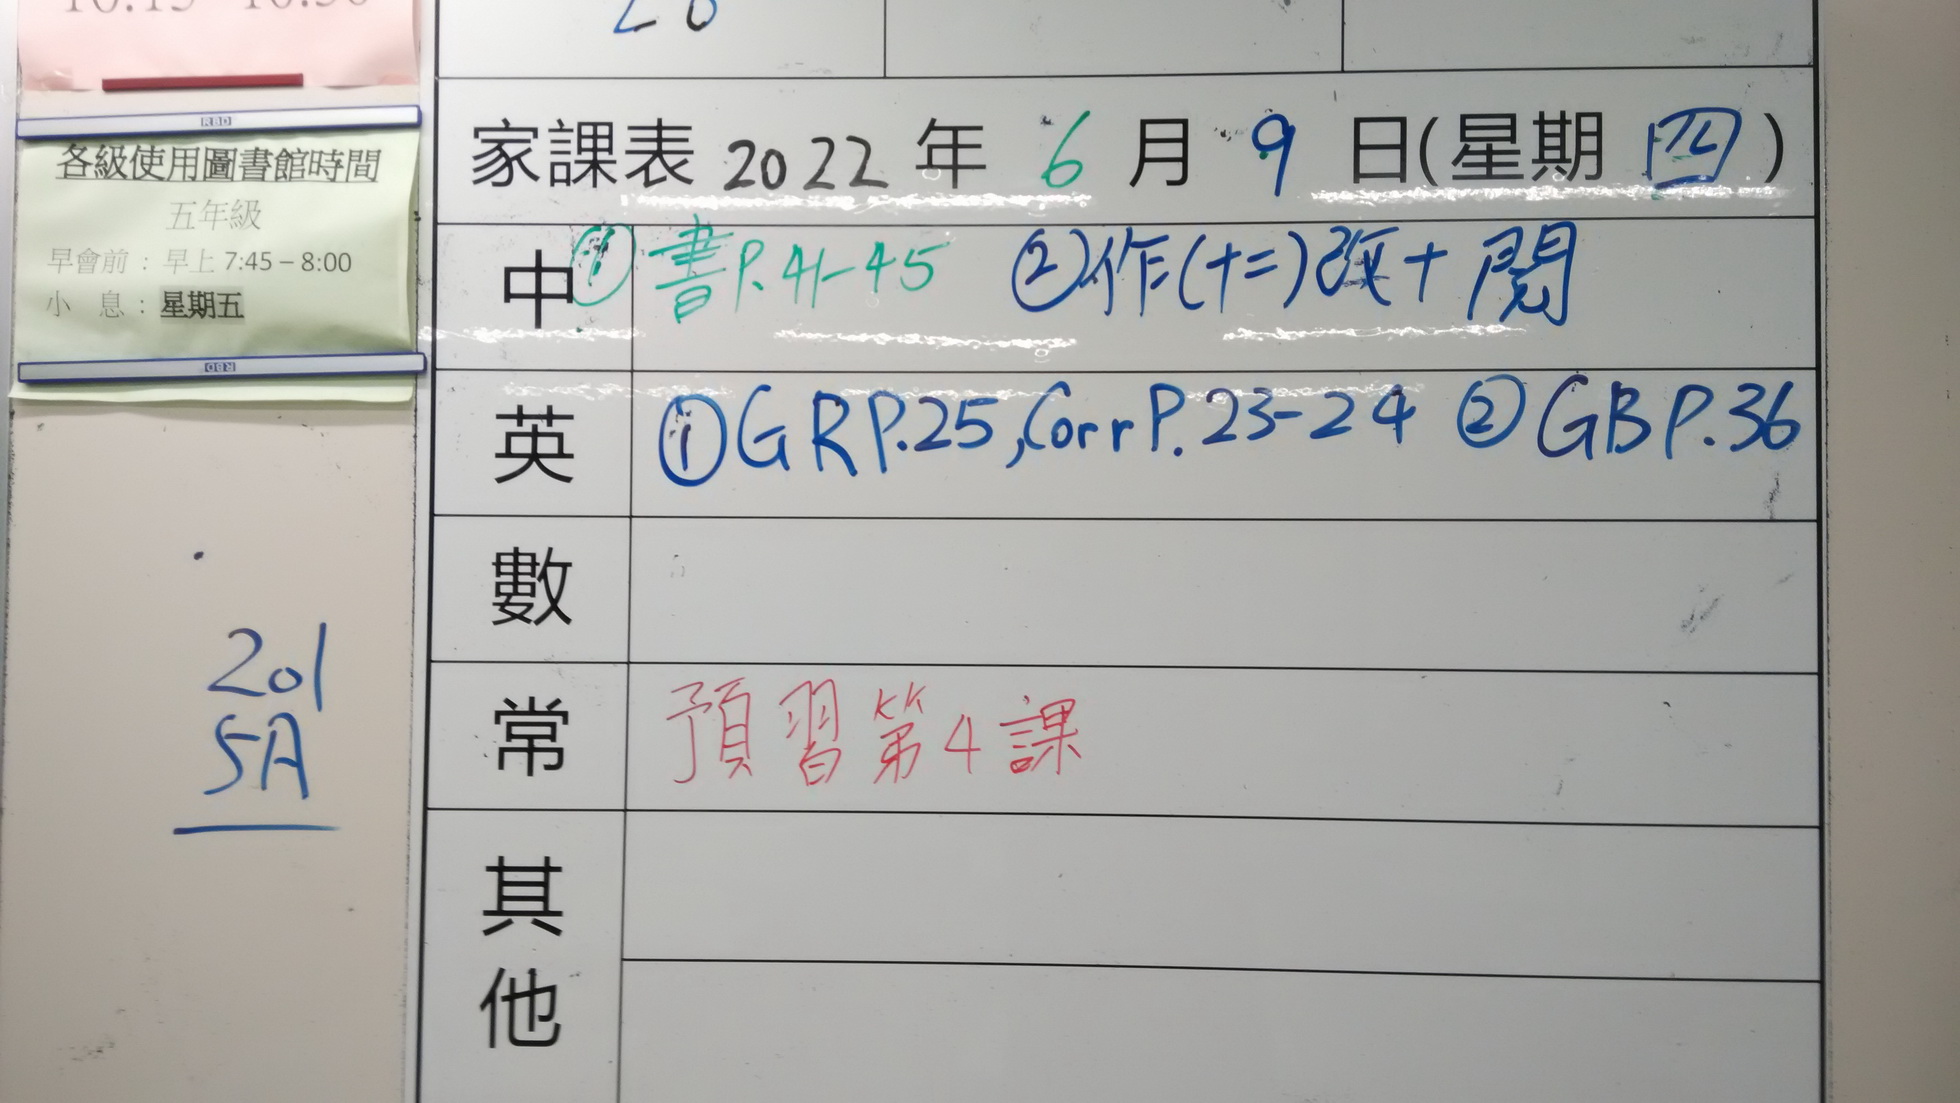 各級使用圖書館時間
五年級
早會前：早上 7:45 – 8:00
小息：星期五
201
5A
家課表 2022 年 6 月 9 日(星期 四)
中 ① 書P.41-45 ②作(十二)張+閱
英 ①GR P.25,Corr P.23-24 ②GB P.36
數
常 預習第4課
其他